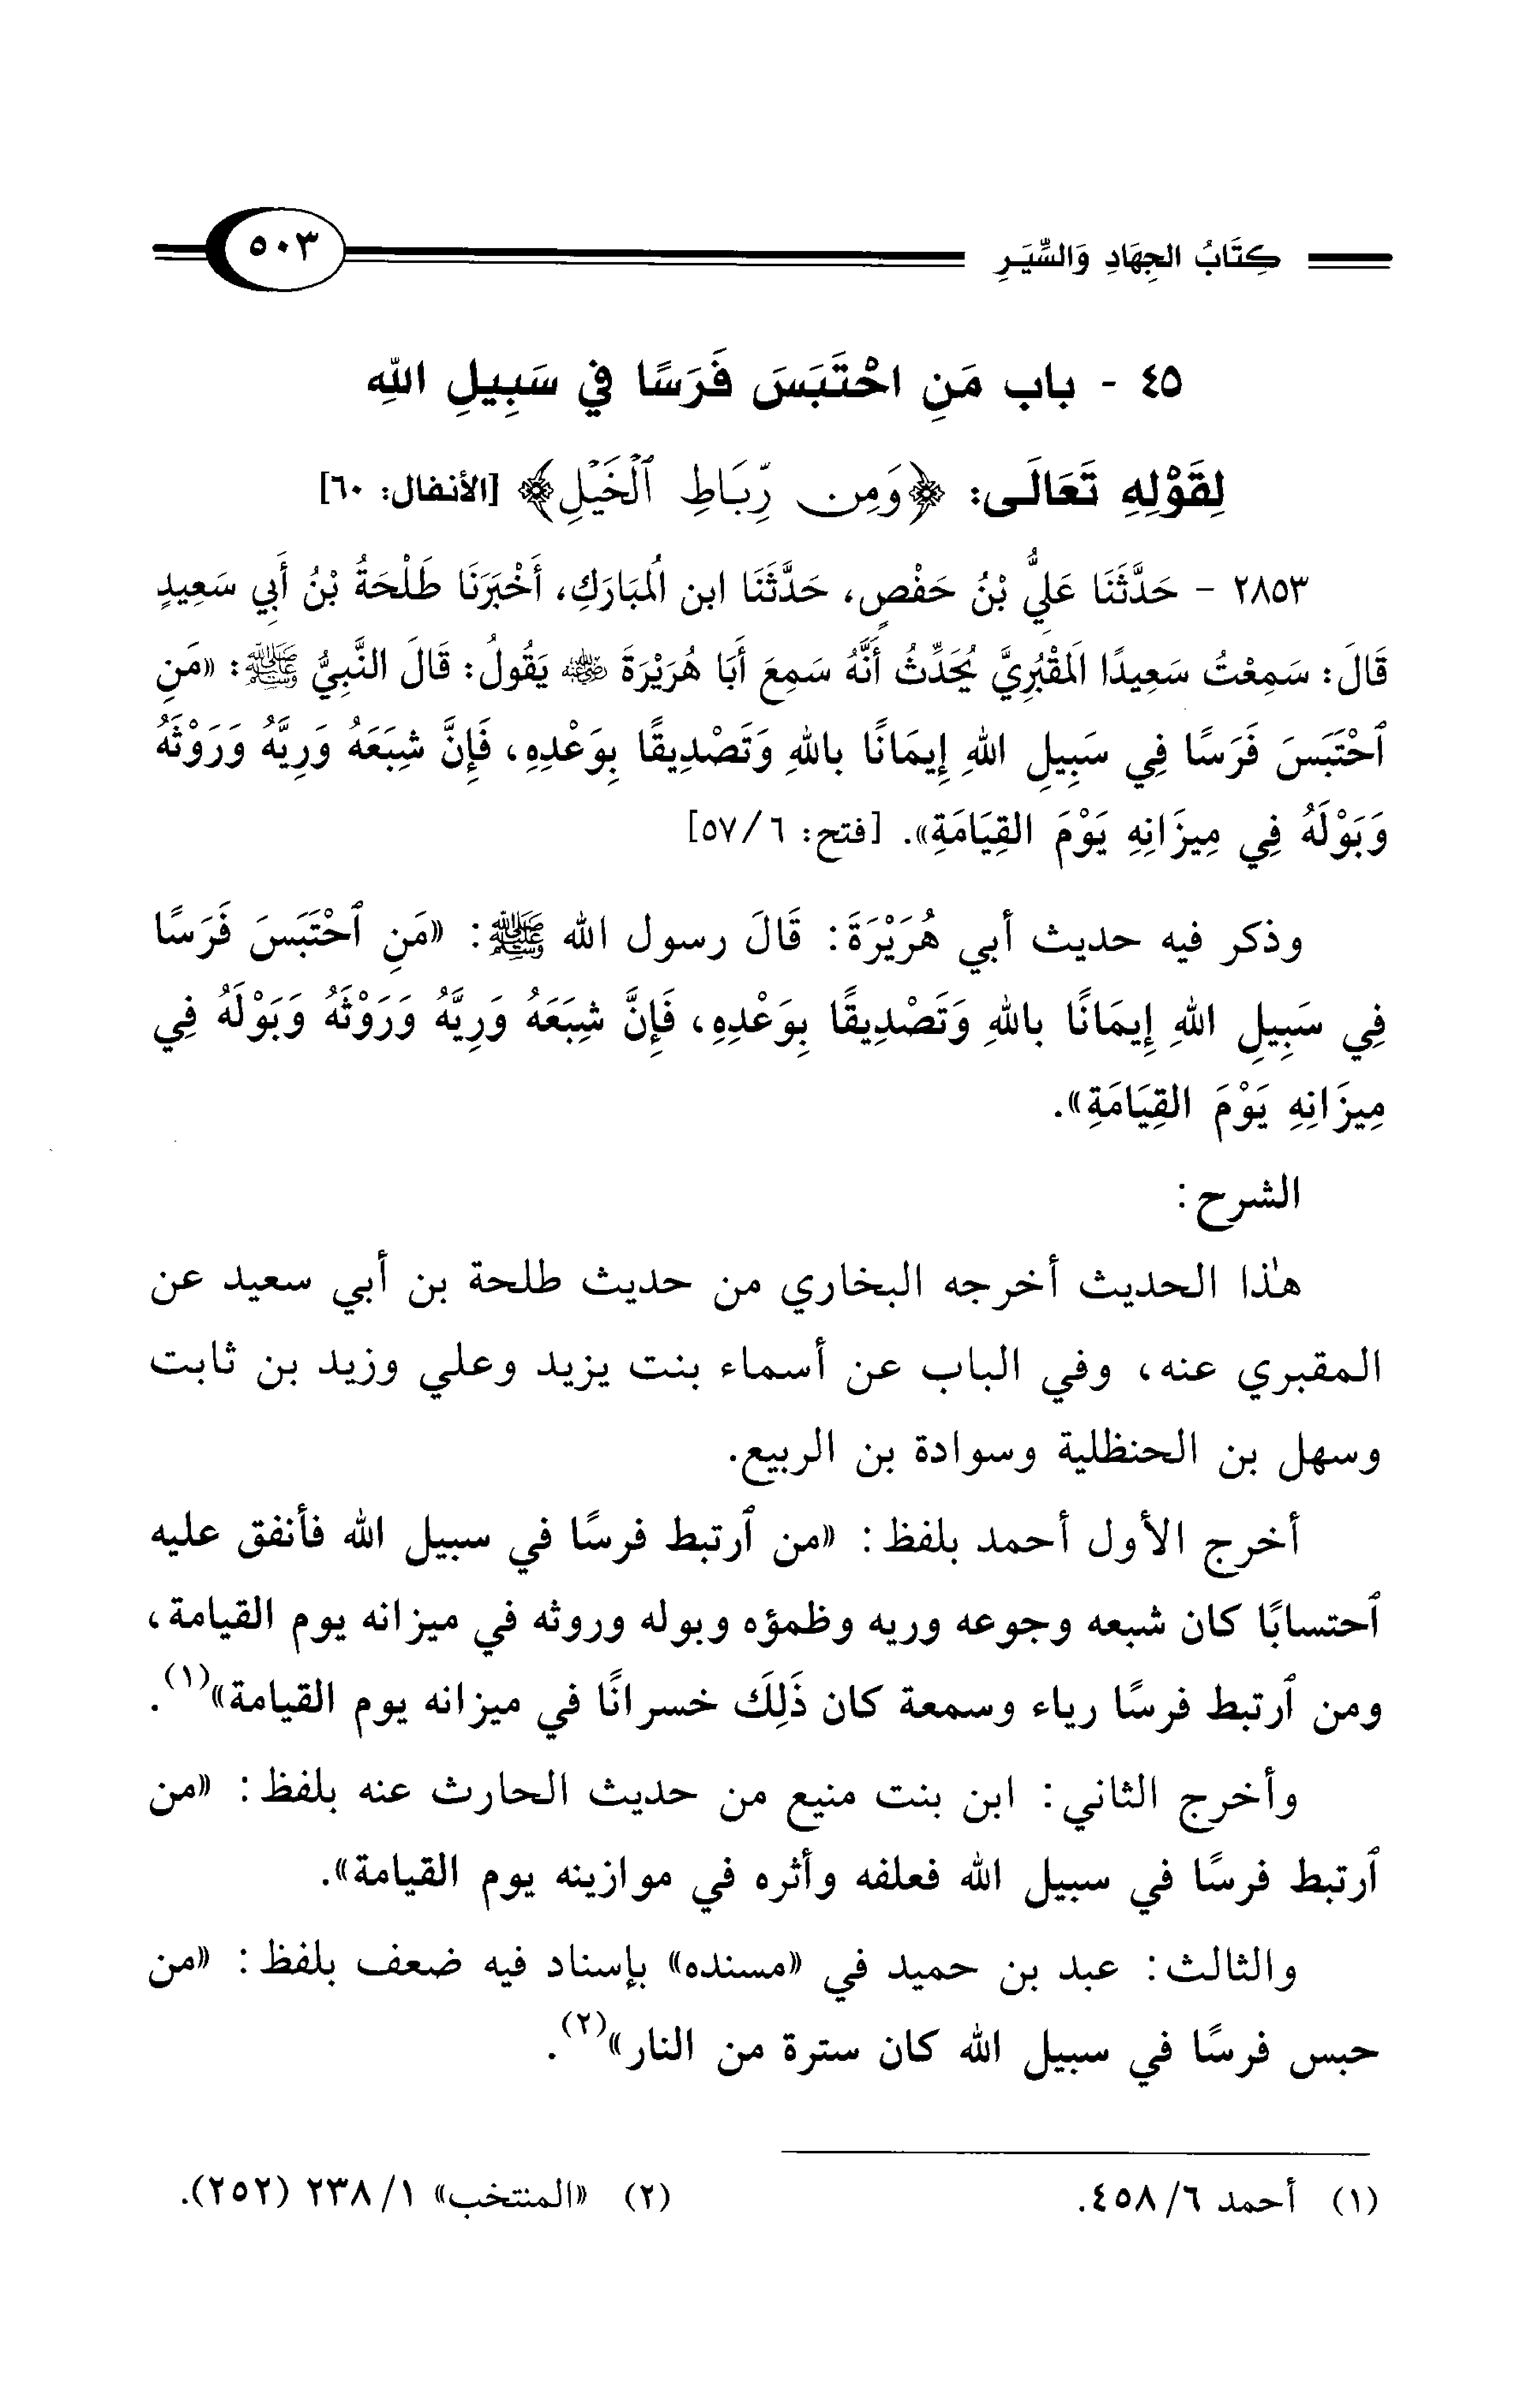 كِتَابُ الجِهَادِ وَالسِّيَرِ ٥٠٣
٤٥ - باب مَنِ احْتَبَسَ فَرَسًا في سَبِيلِ اللهِ
لِقَوْلِهِ تَعَالَى: ﴿وَمِن رِّبَاطِ ٱلْخَيْلِ﴾ [الأنفال: ٦٠]
٢٨٥٣ - حَدَّثَنَا عَلِيُّ بْنُ حَفْصٍ، حَدَّثَنَا ابن اُلمبَارَكِ، أَخْبَرَنَا طَلْحَةُ بْنُ أَبِي سَعِيدٍ
قَالَ: سَمِعْتُ سَعِيدًا اَلمقْبُرِيَّ يُحَدِّثُ أَنَّهُ سَمِعَ أَبَا هُرَيْرَةَ رضي الله عنه يَقُولُ: قَالَ النَّبِيُّ ﷺ: «مَنِ
ٱحْتَبَسَ فَرَسًا فِي سَبِيلِ اللهِ إِيمَانًا باللهِ وَتَصْدِيقًا بِوَعْدِهِ، فَإِنَّ شِبَعَهُ وَرِيَّهُ وَرَوْثَهُ
وَبَوْلَهُ فِي مِيزَانِهِ يَوْمَ القِيَامَةِ». [فتح: ٦/ ٥٧]
وذكر فيه حديث أبي هُرَيْرَةَ: قَالَ رسول الله ﷺ: «مَنِ ٱحْتَبَسَ فَرَسًا
فِي سَبِيلِ اللهِ إِيمَانًا باللهِ وَتَصْدِيقًا بِوَعْدِهِ، فَإِنَّ شِبَعَهُ وَرِيَّهُ وَرَوْثَهُ وَبَوْلَهُ فِي
مِيزَانِهِ يَوْمَ القِيَامَةِ».
الشرح:
هذا الحديث أخرجه البخاري من حديث طلحة بن أبي سعيد عن
المقبري عنه، وفي الباب عن أسماء بنت يزيد وعلي وزيد بن ثابت
وسهل بن الحنظلية وسوادة بن الربيع.
أخرج الأول أحمد بلفظ: «من ٱرتبط فرسًا في سبيل الله فأنفق عليه
ٱحتسابًا كان شبعه وجوعه وريه وظمؤه وبوله وروثه في ميزانه يوم القيامة،
ومن ٱرتبط فرسًا رياء وسمعة كان ذَلِكَ خسرانًا في ميزانه يوم القيامة»(١).
وأخرج الثاني: ابن بنت منيع من حديث الحارث عنه بلفظ: «من
ٱرتبط فرسًا في سبيل الله فعلفه وأثره في موازينه يوم القيامة».
والثالث: عبد بن حميد في «مسنده» بإسناد فيه ضعف بلفظ: «من
حبس فرسًا في سبيل الله كان سترة من النار»(٢).
(١) أحمد ٦/ ٤٥٨.
(٢) «المنتخب» ١/ ٢٣٨ (٢٥٢).